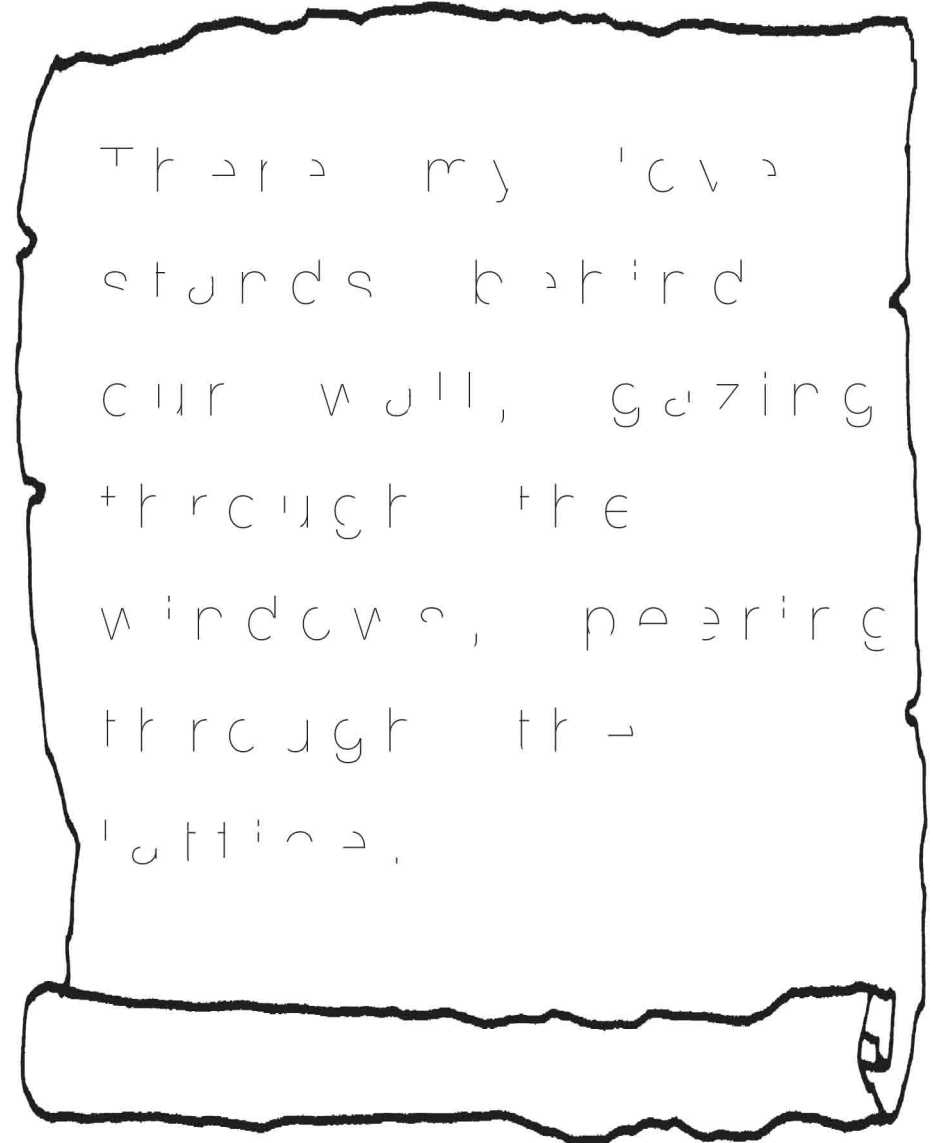 There my love
stands behind
our wall, gazing
through the
windows, peering
through the
lattice.